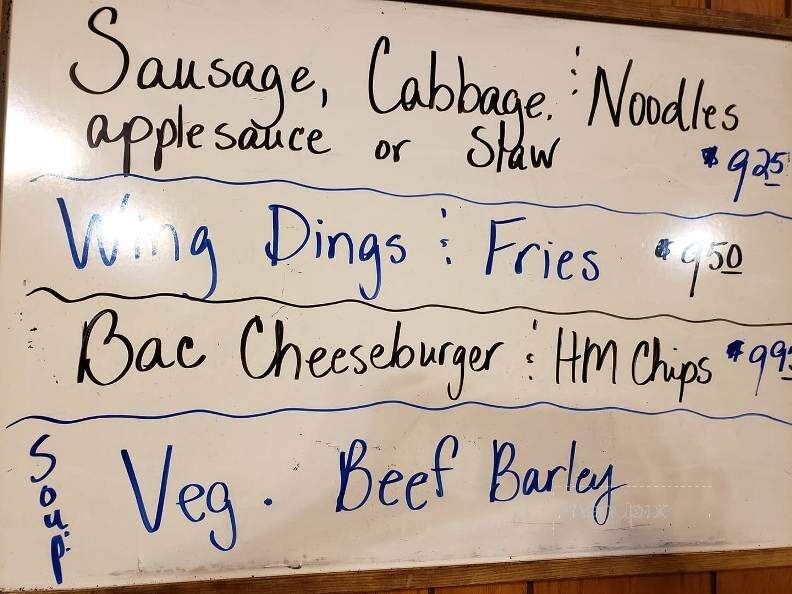 Sausage, Cabbage, : Noodles
applesauce or Slaw
$ 925
Wing Dings : Fries $ 950
Bac Cheeseburger : HM Chips $ 995
Soup: Veg. Beef Barley
menupix